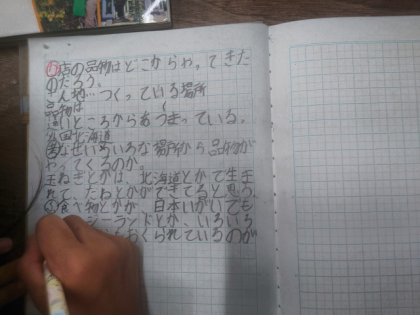 店の品物はどこからやってきた
のだろう。
つくっている場所
品物は
遠いところからあつまっている。
外国北海道
なぜいろいろな場所から品物が
やってくるのか。
玉ねぎとかは、北海道とかで生
たねとかができてると思う。
食べ物とかが、日本いがいでも
ジーランドとか、いろいろ
おくられているのが